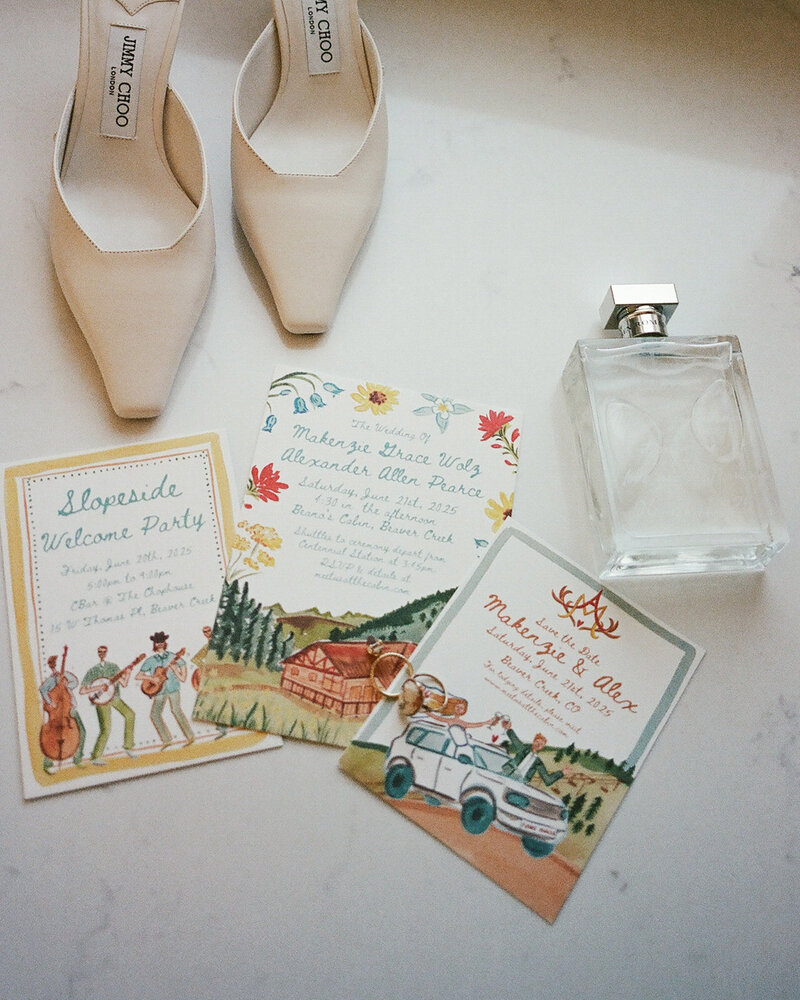 JIMMY CHOO
LONDON
JIMMY CHOO
LONDON
Slopeside
Welcome Party
Friday, June 20th, 2025
5:00pm to 9:00pm
CBar @ The Chophouse
15 W Thomas Pl, Beaver Creek
The Wedding Of
Makenzie Grace Wolz
Alexander Allen Pearce
Saturday, June 21st, 2025
4:30 in the afternoon
Beano's Cabin, Beaver Creek
Shuttles to ceremony depart from
Centennial Station at 3:45pm
RSVP & details at
meetusatthecabin.com
Save the Date
Makenzie & Alex
Saturday, June 21st, 2025
Beaver Creek, CO
For lodging details, please visit
www.meetusatthecabin.com